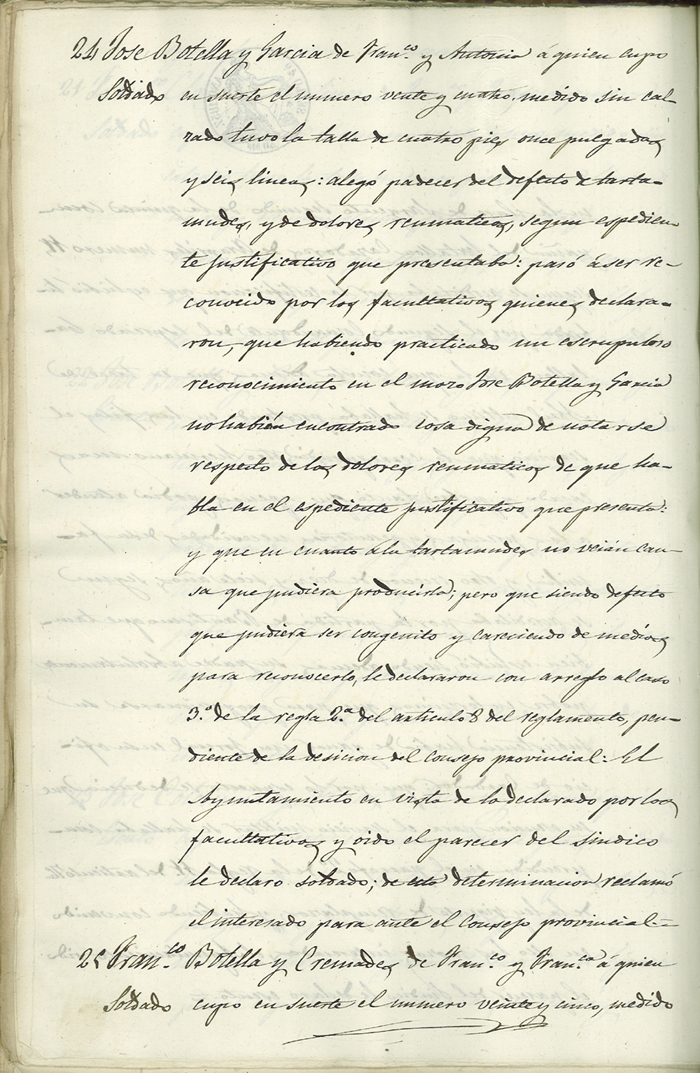 24 Jose Botella y Garcia de Fran.co y Antonia á quien cupo
Soldado en suerte el numero vente y cuatro, medido sin cal-
zado tuvo la talla de cuatro pies once pulgadas
y seis lineas: alegó padecer del defecto de tarta-
mudez, y de dolores reumaticos, segun espedien-
te justificativo que presentaba: pasó á ser re-
conocido por los facultativos quienes declara-
ron, que habiendo practicado un escrupuloso
reconocimiento en el mozo Jose Botella y Garcia
no habián encontrado cosa digna de notarse
respesto de los dolores reumaticos de que ha-
bla en el espediente justificativo que presenta:
y que en cuanto á la tartamudez no veián cau-
sa que pudiera producirla; pero que siendo defecto
que pudiera ser congenito y careciendo de medios
para reconocerlo, le declararon con arreglo al caso
3.º de la regla 2.ª del articulo 8 del reglamento, pen-
diente de la desicion del Consejo provincial: El
Ayuntamiento en vista de lo declarado por los
facultativos y oido el parecer del sindico
le declaro soldado; de esta determinacion reclamó
el interesado para ante el Consejo provincial.-
25 Fran.co Botella y Cremades de Fran.co y Fran.ca á quien
Soldado cupo en suerte el numero veinte y cinco, medido